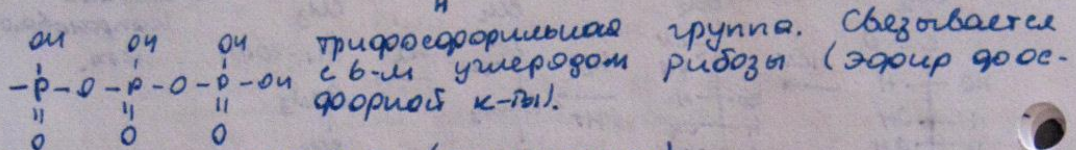 OH OH OH
-P-O-P-O-P-OH
O O O
трифосфорильная группа. Связывается
с 6-м углеродом рибозы (эфир фос-
форной к-ты).